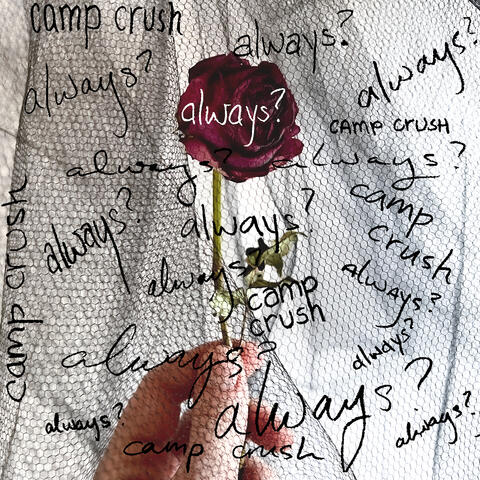 camp crush
always?
always?
always?
always?
camp crush
always?
always?
camp
crush
camp crush
always?
always?
always?
always?
camp
crush
always?
always?
always?
always?
always?
camp crush